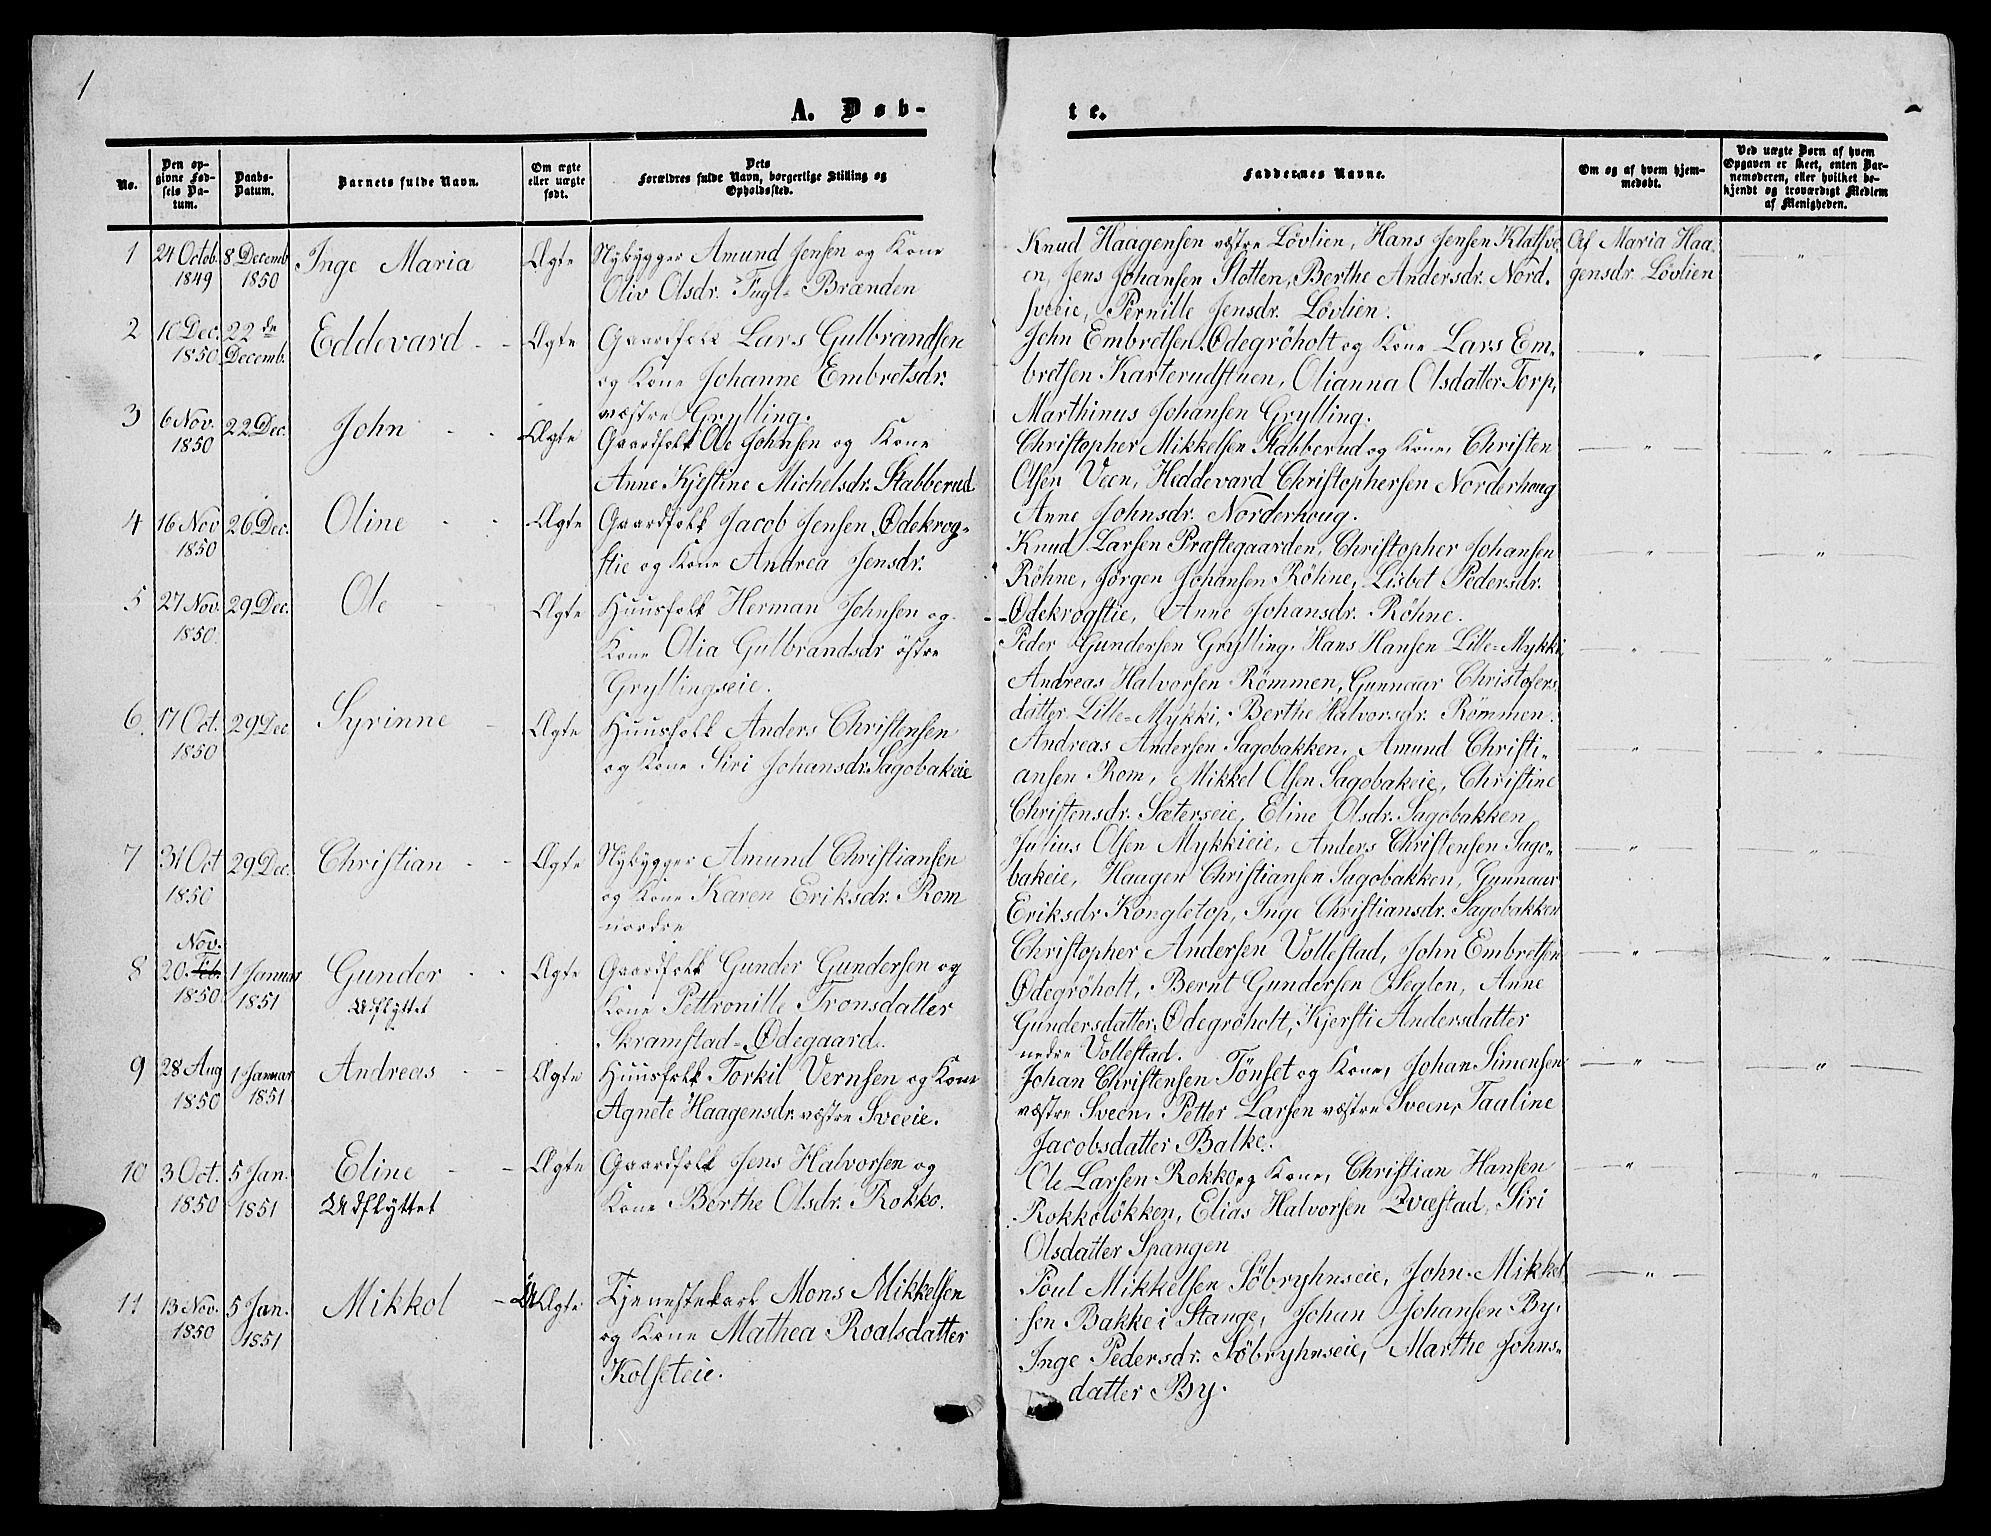 1
A. Døb-
te.
No.
Den op-
givne Fød-
sels Da-
tum.
Daabs-
Datum.
Barnets fulde Navn.
Om ægte
eller uægte
født.
Dets
Forældres fulde Navn, borgerlige Stilling og
Opholdssted.
Faddernes Navne.
Om og af hvem hjem-
medøbt.
Ved uægte Børn af hvem
Opgaven er skeet, enten Bar-
nemoderen, eller hvilket be-
kjendt og troværdigt Medlem
af Menigheden.
1
24 Octob.
1849
8 Decemb
1850
Inge Maria
Ægte
Nybygger Amund Jensen og Kone
Oliv Olsdr. Fugl-Brænden
Knud Haagensen væstre Lövlien, Hans Jensen Klatsve-
en, Jens Johansen Slotten, Berthe Andersdr. Nord-
sveeie, Pernille Jensdr. Lövlien.
Af Maria Haa-
gensdr. Lövlien
2
10 Dec.
1850
22 de
Decemb.
Eddevard
Ægte
Gaardfolk Lars Gulbrandsen
og Kone Johanne Embretsdr.
væstre Grylling.
John Embretsen Ødegröholt og Kone Lars Em-
bretsen Karterudstuen, Olianna Olsdatter Torp,
Marthinus Johansen Grylling.
3
6 Nov.
1850
22 Dec.
John
Ægte
Gaardfolk Ole Johnsen og Kone
Anne Kjestine Michelsdr. Stabberud
Christopher Mikkelsen Stabberud og Kone, Christen
Olsen Veen, Heddevard Christophersen Norderhoug
Anne Johnsdr. Norderhoug.
4
16 Nov
1850
26 Dec.
Oline
Ægte
Gaardfolk Jacob Jensen Ødekrog-
stie og Kone Andrea Jensdr.
Knud Larsen Prastegaarden, Christopher Johansen
Röhne, Jörgen Johansen Röhne, Lisbet Pedersdr.
Ødekrogstie, Anne Johansdr. Röhne.
5
27 Nov.
1850.
29 Dec.
Ole
Ægte
Huusfolk Herman Johnsen og
Kone Olia Gulbrandsdr östre
Gryllingseie.
Peder Gundersen Grylling, Hans Hansen Lille-Mykki,
Andreas Halvorsen Römmen, Gunnaar Christofers
datter Lille-Mykki, Berthe Halvorsdr. Römmen.
6.
17 Oct.
1850
29 Dec
Syrinne
Ægte
Huusfolk Anders Christensen
og Kone Siri Johansdr. Sagobakeie
Andreas Andersen Sagobakken, Amund Christi-
ansen Rom, Mikkel Olsen Sagobakeie, Christine
Christensdr. Sæterseie, Eline Olsdr. Sagobakken
7
31 Oct
1850
29 Dec.
Christian
Ægte
Nybygger Amund Christiansen
og Kone Karen Eriksdr. Rom
nordre
Julius Olsen Mykkieie, Anders Christensen Sago-
bakeie, Haagen Christiansen Sagobakken, Gunnaar
Eriksdr Kongletop, Inge Christiansdr. Sagobakken
8
Nov.
20. Feb.
1850
1 Januar
1851
Gunder
Udflyttet
Ægte
Gaardfolk Gunder Gundersen og
Kone Pettronille Tronsdatter
Skramstad-Ødegaard.
Christopher Andersen Vollestad, John Embretsen
Ødegröholt, Bernt Gundersen Seglen, Anne
Gundersdatter Ødegröholt, Kjersti Andersdatter
nedre Vollestad.
9
28 Aug
1850
1 Januar
1851
Andreas
Ægte
Huusfolk Torkil Vernsen og Kone
Agnete Haagensdr. væstre Sveeie.
Johan Christensen Tönset og Kone, Johan Simensen
væstre Sveen, Petter Larsen væstre Sveen, Taaline
Jacobsdatter Balke.
10
3 Oct.
1850
5 Jan.
1851
Eline
Udflyttet
Ægte
Gaardfolk Jens Halvorsen og
Kone Berthe Olsdr. Rokko.
Ole Larsen Rokko og Kone, Christian Hansen
Rokkolökken, Elias Halvorsen Qvæstad, Siri
Olsdatter Spangen
11
13 Nov.
1850
5 Jan.
1851
Mikkel
UÆgte
Tjenestekarl Mons Mikkelsen
og Kone Mathea Roalsdatter
Kolseteie.
Poul Mikkelsen Söbryhnseie, John Mikkel
sen Bakke i Stange, Johan Johansen By.
Inge Pedersdr. Söbryhnseie, Marthe Johns-
datter By.